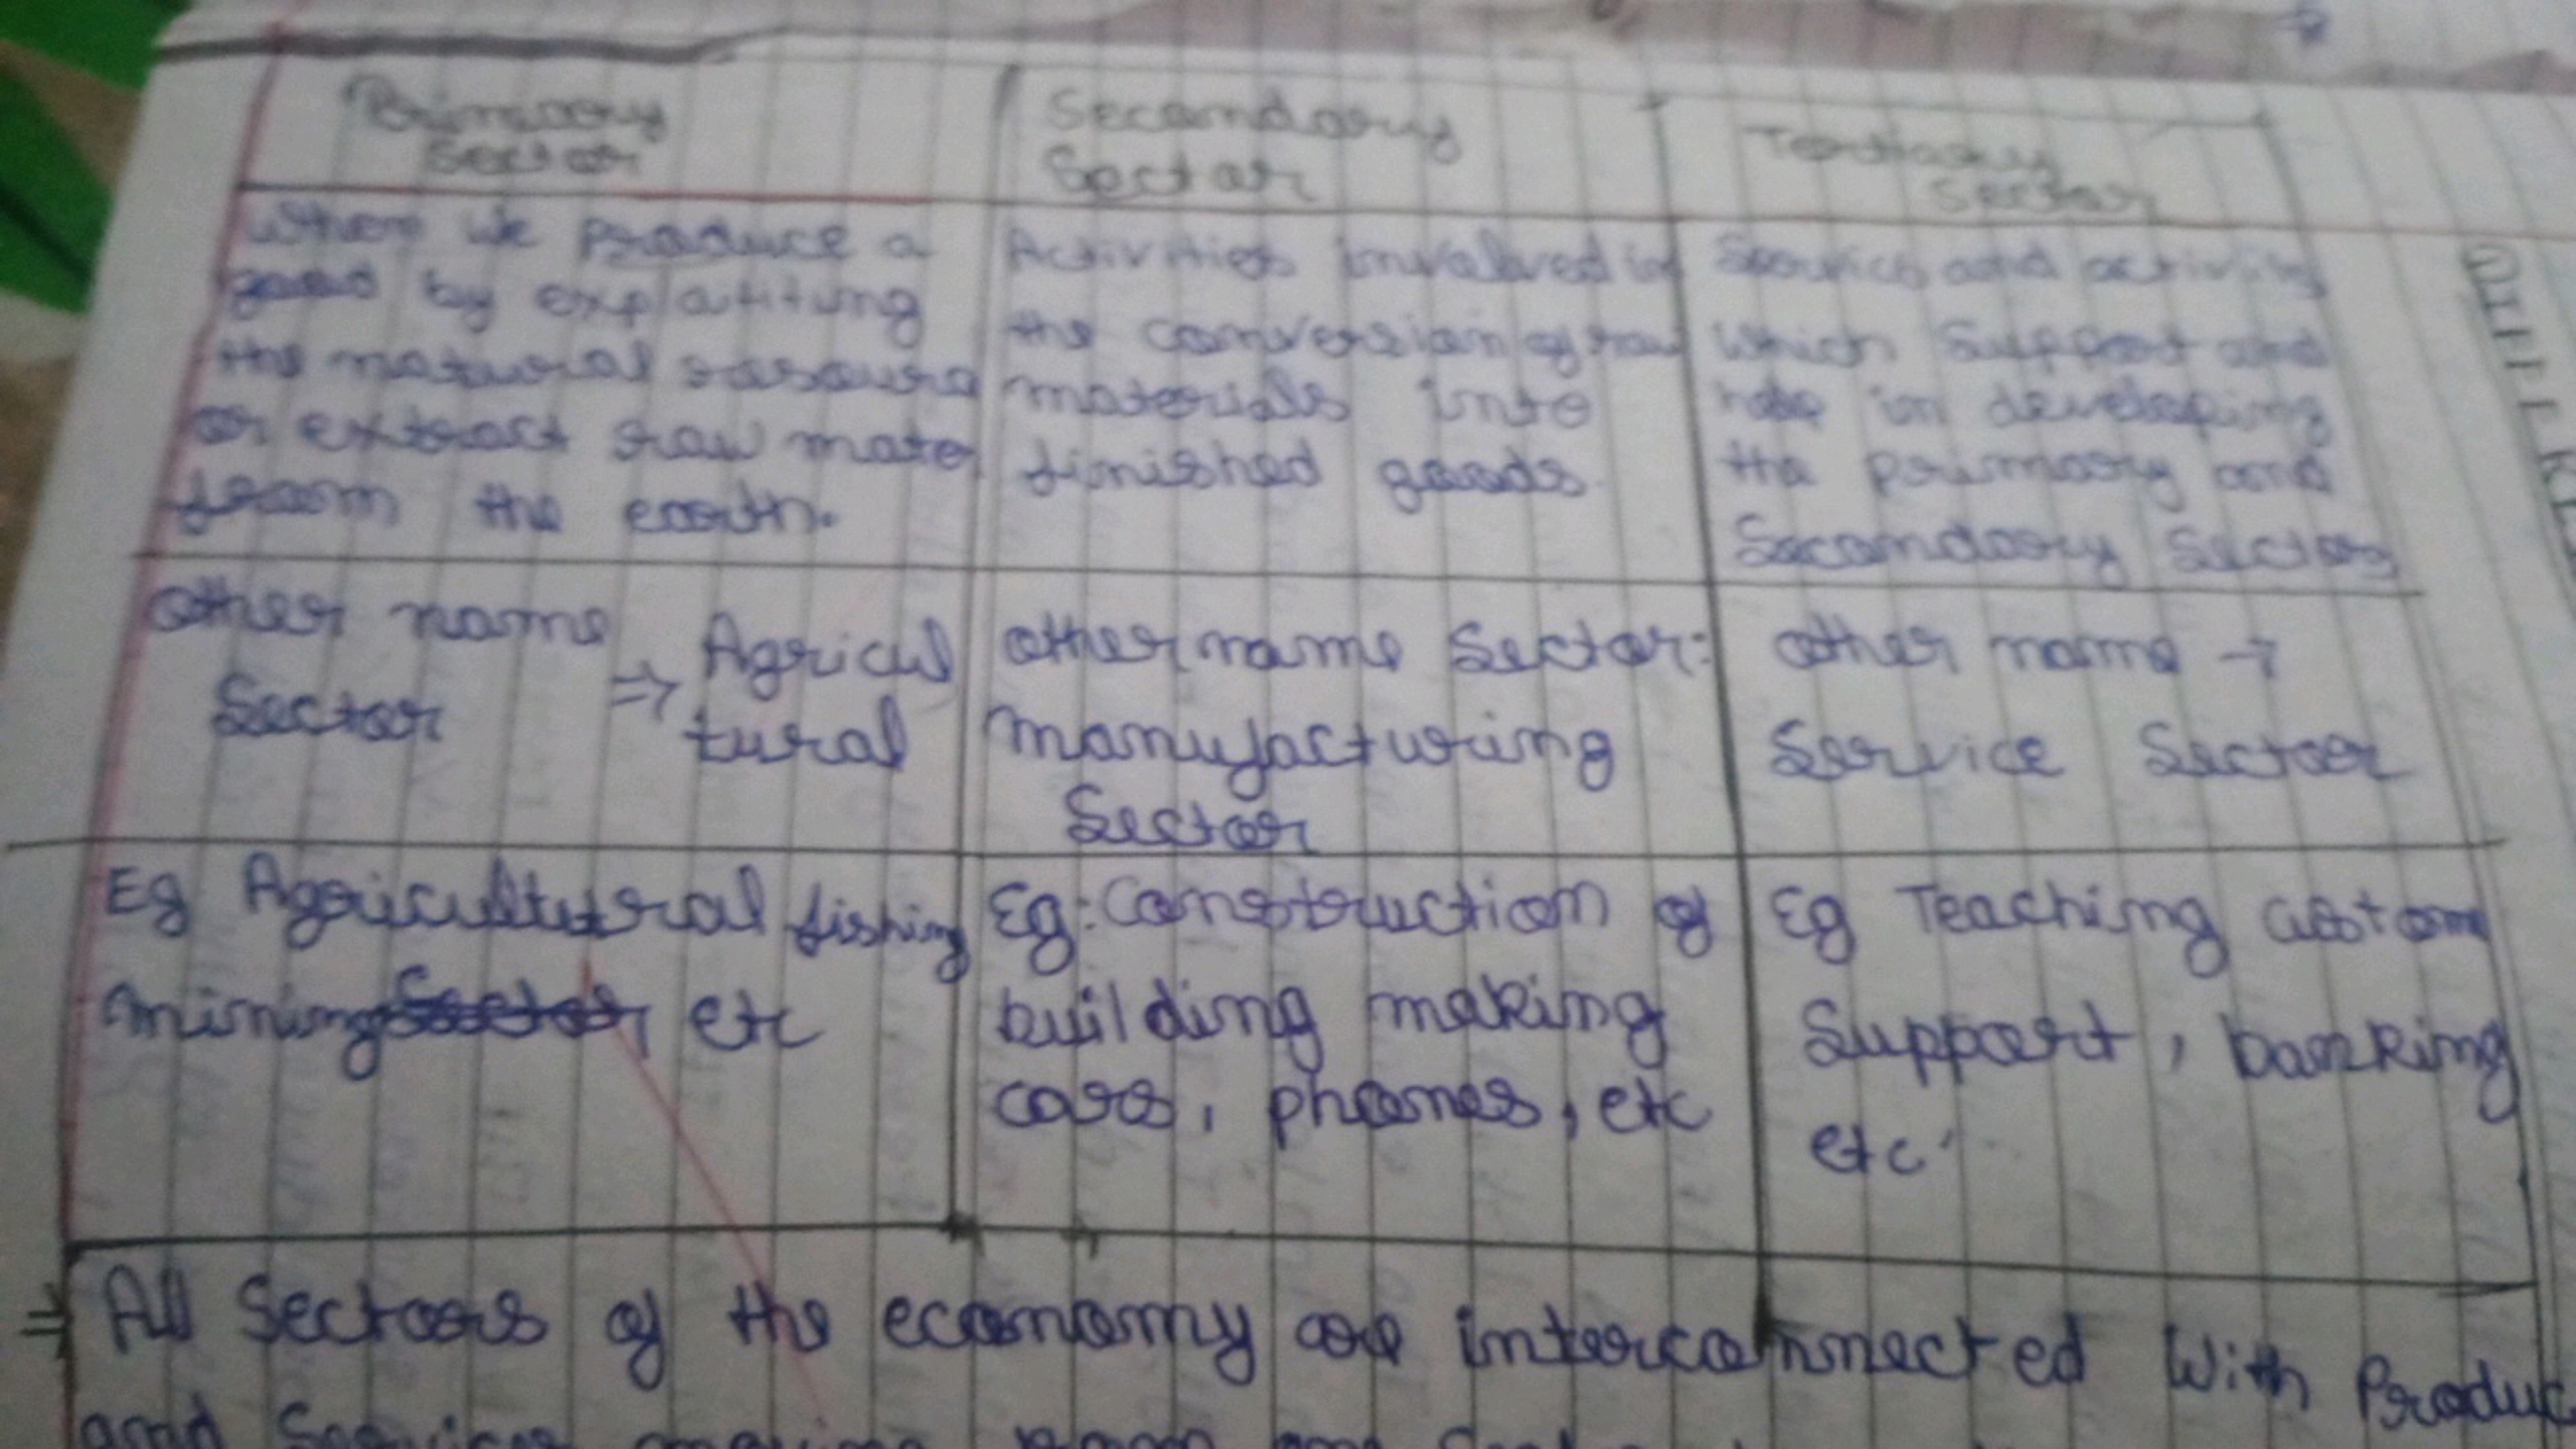 Primary
Sector
When we produce a
good by exploiting
the natural resource
or extract raw mate
from the earth.
Secondary
Sector
Activities involved in
the conversion of raw
materials into
finished goods
Tertiary
Sector
Services and activities
which support and
in developing
the primary and
Secondary Sector
other name
Sector ⇒ Agricul
tural
other name Sector:
manufacturing
Sector
other name →
Service Sector
Eg Agricultural fishing
mining etc
Eg: Construction of
building making
cars, phones, etc
Eg Teaching custom
Support, banking
etc.
⇒ All Sectors of the economy are interconnected with Produc
and Services